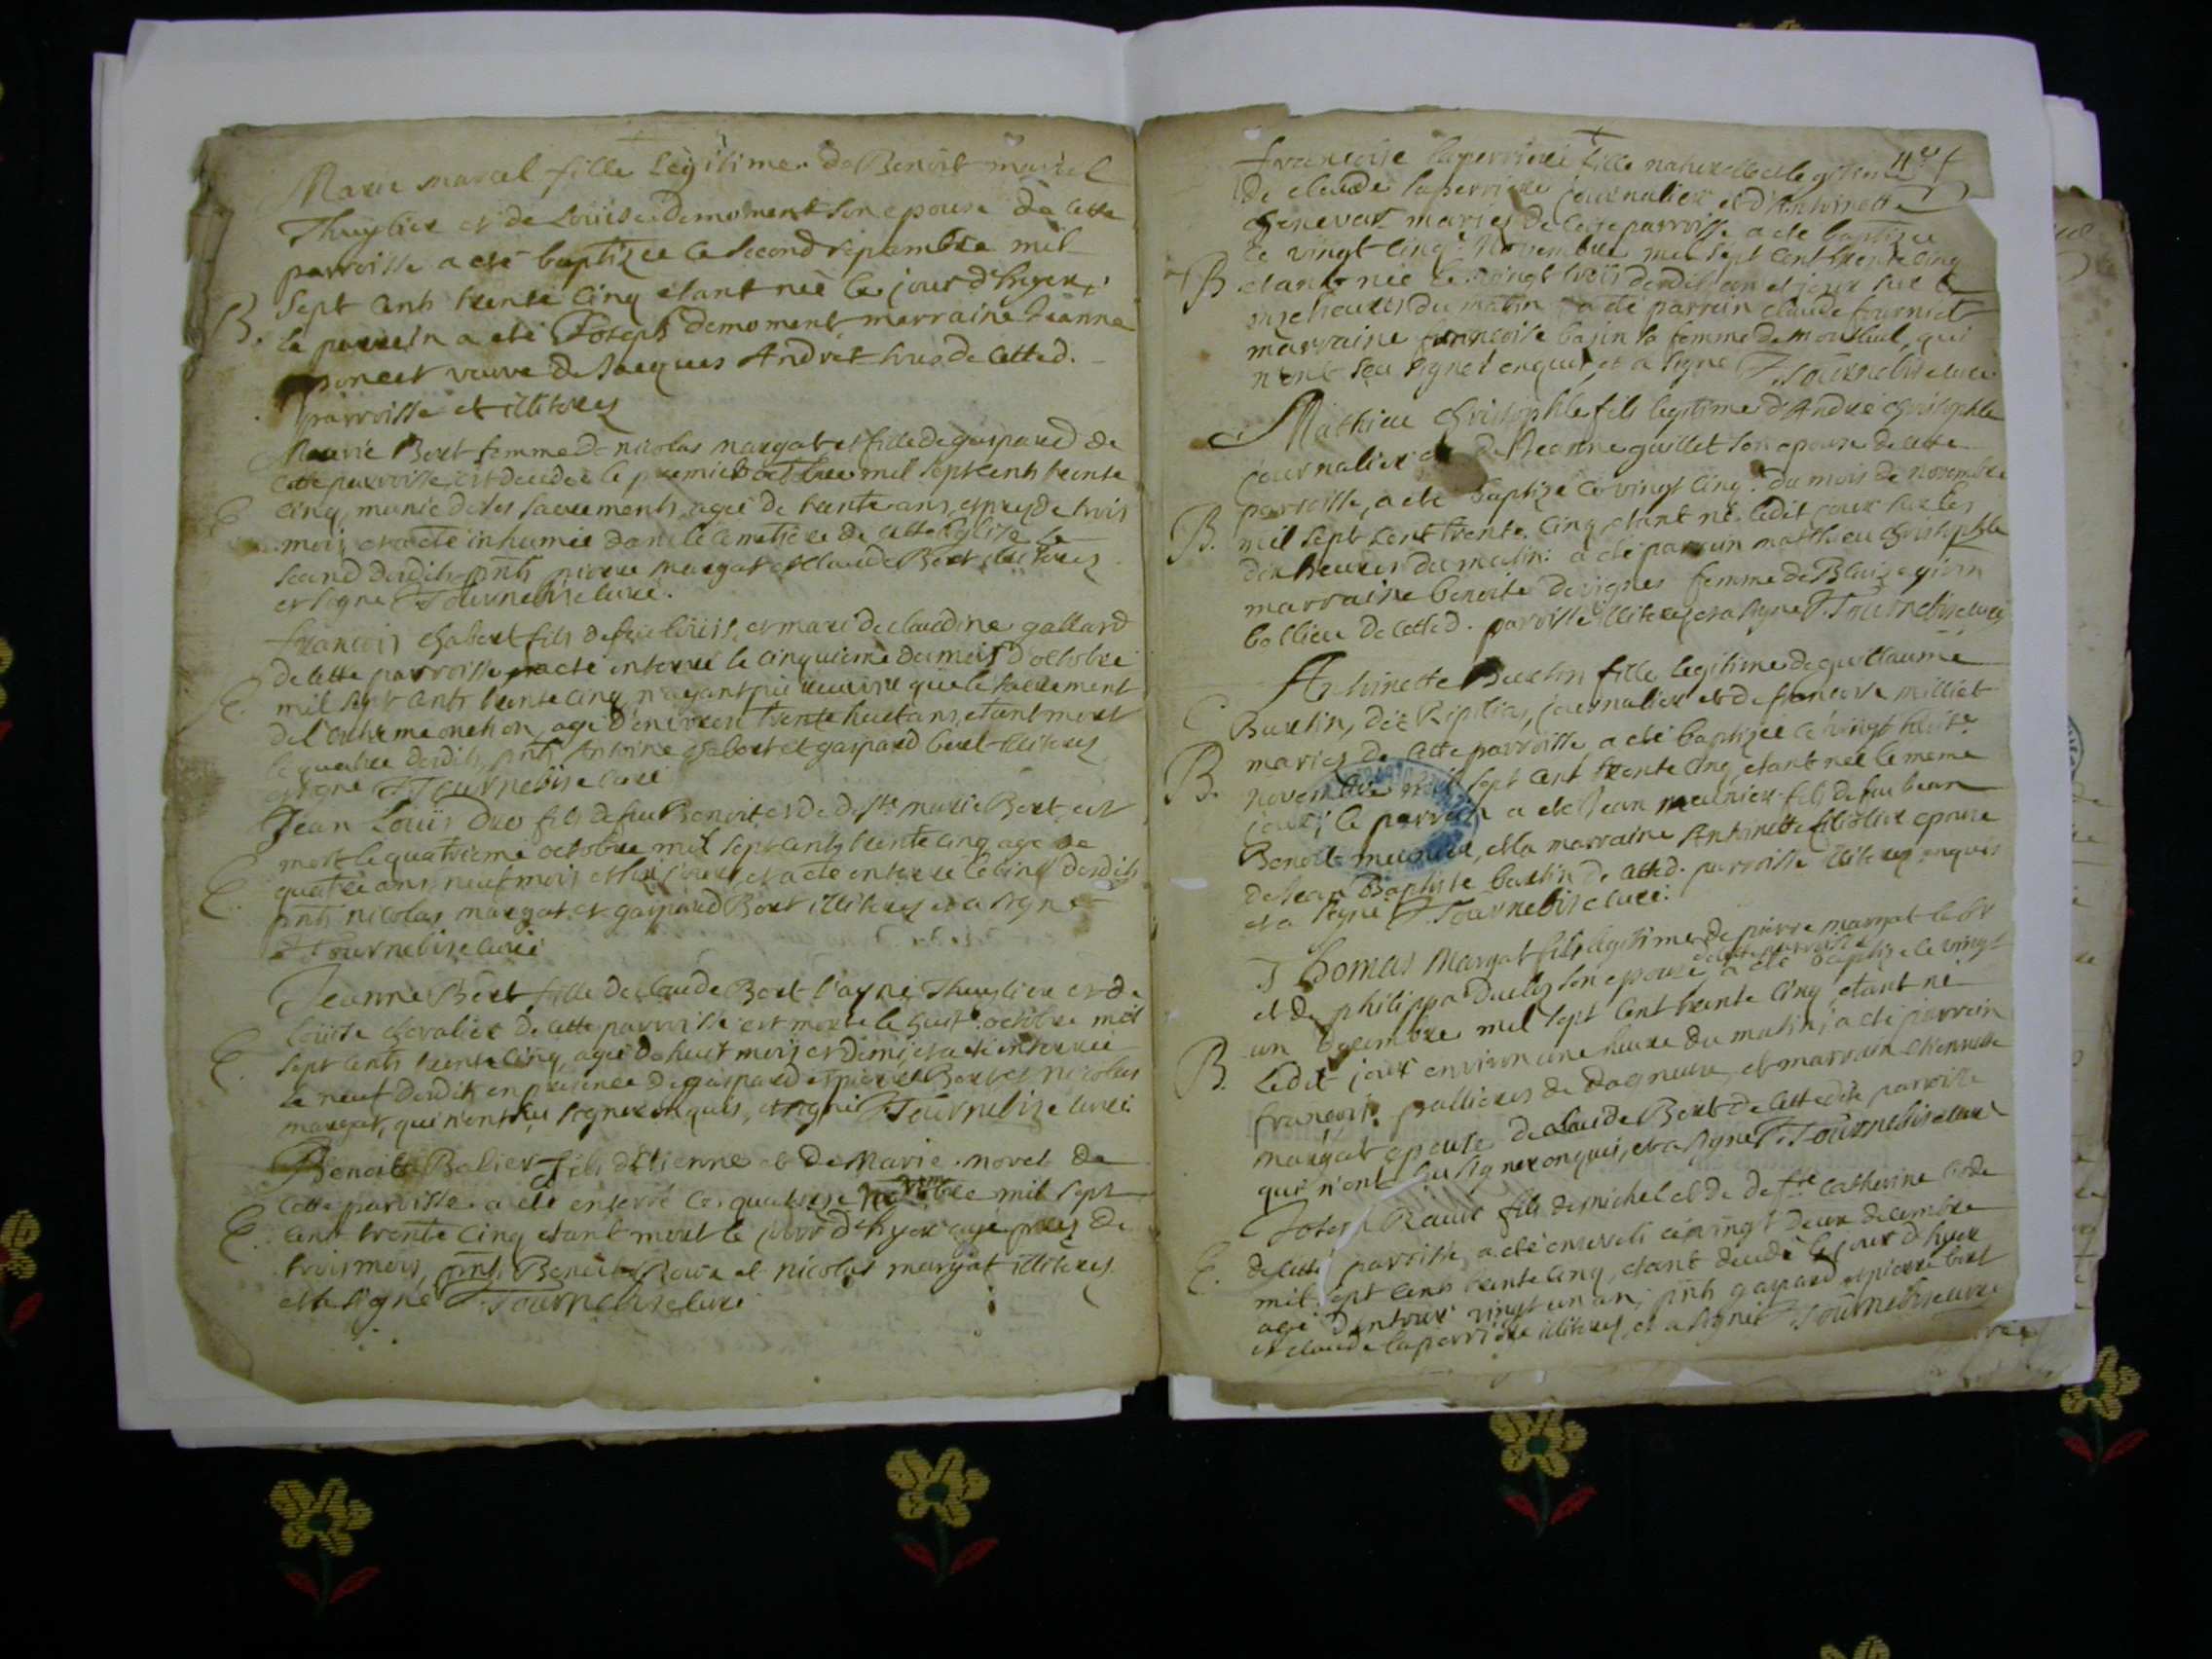 Marie marcel fille Legitime de Benoit marcel
Thuylier et de Loüise demoment son epouse de cette
parroisse a eté baptizée le second septembre mil
B. sept cents trente cinq etant née le jour d'hyer,
le parrein a eté Joseph demoment marraine Jeanne
poncet veuve de Jacques Andrét tous de cetted.
parroisse et illiteres
Marie Bert femme de nicolas margat et fille de gaspard de
cette parroisse, est decedée le premier octobre mil sept cents trente
E cinq, munie de ses sacrements, agée de trente ans, et pres de trois
mois, et a eté inhumée dans le cemetiere de cette Eglise le
second desdits pnts pierre margat et Claude Bert illiteres
et signé F. Tournebise curé.
francois Chabert fils de feu loüis, et mari de claudine gallard
de cette parroisse a eté enterré le cinquieme du mois d'octobre
E. mil sept cents trente cinq n'ayant pû recevoir que le sacrement
de l'extreme onction, agé d'environ trente huit ans, etant mort
le quatre desdits, pnts Antoine Chabert et gaspard bert illiteres
et signé F Tournebise curé
Jean Louïs Duo fils de feu Benoit et de defte marie Bert, est
mort le quatrieme octobre mil sept cents trente cinq agé de
E. quatre ans neuf mois et six jours, et a eté enterré le cinq desdits
pnts nicolas margat, et gaspard Bert illiteres et a signé
F Tournebise curé
Jeanne Bert fille de Claude Bert l'ayné Thuyliere et de
Loüise chevalier de cette parroisse est morte le huite. octobre mil
E. sept cents trente cinq, agée de huit mois et demi, et a eté enterrée
le neuf desdits en presence de gaspard et pierre Bert et nicolas
margat, qui n'ont sçu signer enquis, et signé F Tournebise curé
Benoit Belier fils d'Etienne et de Marie novet de
cette parroisse a eté enterré le quatorze novembre mil sept
E. cent trente cinq etant mort le jour d'hyer agé pres de
trois mois, pnts Benoit Roux et nicolas margat illiteres
et a signé F. Tournebise curé
francoise laperriere fille naturelle et legitime
de claude laperriere journalier et d'Antoinette
Genevat mariés de cette parroisse a eté baptizée
le vingt cinqe. Novembre mil sept cent trente cinq
B etant née le vingt trois desdits an et jour sur les
onze heures du matin a eté parrein claude fourniet
marraine francoise bajin sa femme de monluel, qui
n'ont sçu signer enquis, et a signé F. Tournebise curé
Mathieu Christophle fils legitime d'André Christophle
journalier et de Jeanne guillet son epouse de cette
parroisse, a eté baptizé le vingt cinqe. du mois de novembre
B. mil sept cent trente cinq, etant né ledit jour sur les
dix heures du matin: a eté parrein matthieu Christophle
marraine benoite devignes femme de Blaize
bollieu de cetted. parroisse illiteres et a signé F. Tournebise curé
Antoinette Burtin fille legitime de guillaume
Burtin, dit journalier et de francoise milliet
mariés de cette parroisse, a eté baptizée le vingt huite.
B. novembre mil sept cent trente cinq, etant née le meme
jour; le parrein a eté Jean meunier fils de feu
Benoit meunier, et la marraine Antoinette epouse
de Jean Baptiste burtin de cetted. parroisse illiteres enquis
et a signé F Tournebise curé.
Thomas Margat fils legitime de pierre margat
et de philippa Duclos son epouse de cette parroisse a eté baptizé le vingt
un decembre mil sept cent trente cinq, etant né
B. Ledit jour environ une heure du matin; a eté parrein
francois pallieres de dagneux, et marraine Etiennette
margat epouse de claude Bert de cettedite parroisse
qui n'ont sçu signer enquis, et a signé F. Tournebise curé
Joseph Roux fils de michel et de defte. Catherine
de cette parroisse, a eté enseveli le vingt deux decembre
E. mil sept cents trente cinq, etant decedé le jour d'hyer
agé d'entour vingt un an, pnts gaspard et pierre bert
et claude laperriere illiteres, et a signé F Tournebise curé